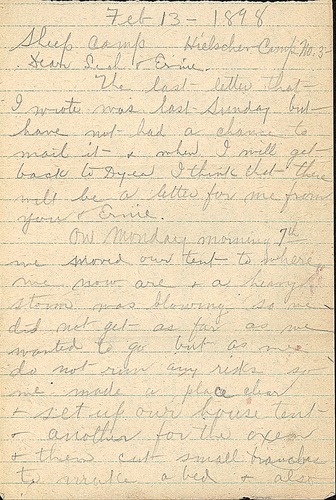 Feb 13 - 1898
Sleep Camp Hielscher Camp No. 3
Dear Seal & Ernie.
The last letter that
I wrote was last Sunday but
have not had a chance to
mail it & when I will get
back to Dyea I think that there
will be a letter for me from
you & Ernie.
On Monday morning 7th
we moved our tent to where
we now are & a heavy
storm was blowing so we
did not get as far as we
wanted to go but as we
do not run any risks so
we made a place clear
& set up our house tent
& another for the oxen
& then cut small branches
to make a bed & also